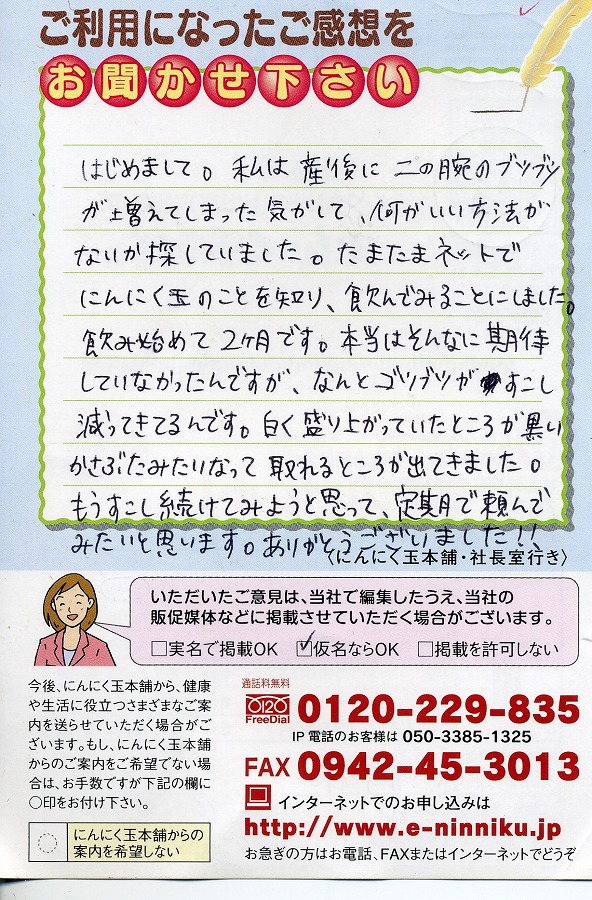 ご利用になったご感想を
お聞かせ下さい
はじめまして。私は産後に二の腕のブツブツ
が増えてしまった気がして、何がいい方法が
ないか探していました。たまたまネットで
にんにく玉のことを知り、飲んでみることにしました。
飲み始めて2ヶ月です。本当はそんなに期待
していなかったんですが、なんとブツブツがすこし
減ってきてるんです。白く盛り上がっていたところが黒い
かさぶたみたいなって取れるところが出てきました。
もうすこし続けてみようと思って、定期で頼んで
みたいと思います。ありがとうございました!!
〈にんにく玉本舗・社長室行き〉
いただいたご意見は、当社で編集したうえ、当社の
販促媒体などに掲載させていただく場合がございます。
□実名で掲載OK ☑仮名ならOK □掲載を許可しない
今後、にんにく玉本舗から、健康
や生活に役立つさまざまなご案
内を送らせていただく場合がご
ざいます。もし、にんにく玉本舗
からのご案内をご希望でない場
合は、お手数ですが下記の欄に
○印をお付け下さい。
にんにく玉本舗からの
案内を希望しない
通話料無料
0120
FreeDial
0120-229-835
IP電話のお客様は 050-3385-1325
FAX 0942-45-3013
インターネットでのお申し込みは
http://www.e-ninniku.jp
お急ぎの方はお電話、FAXまたはインターネットでどうぞ